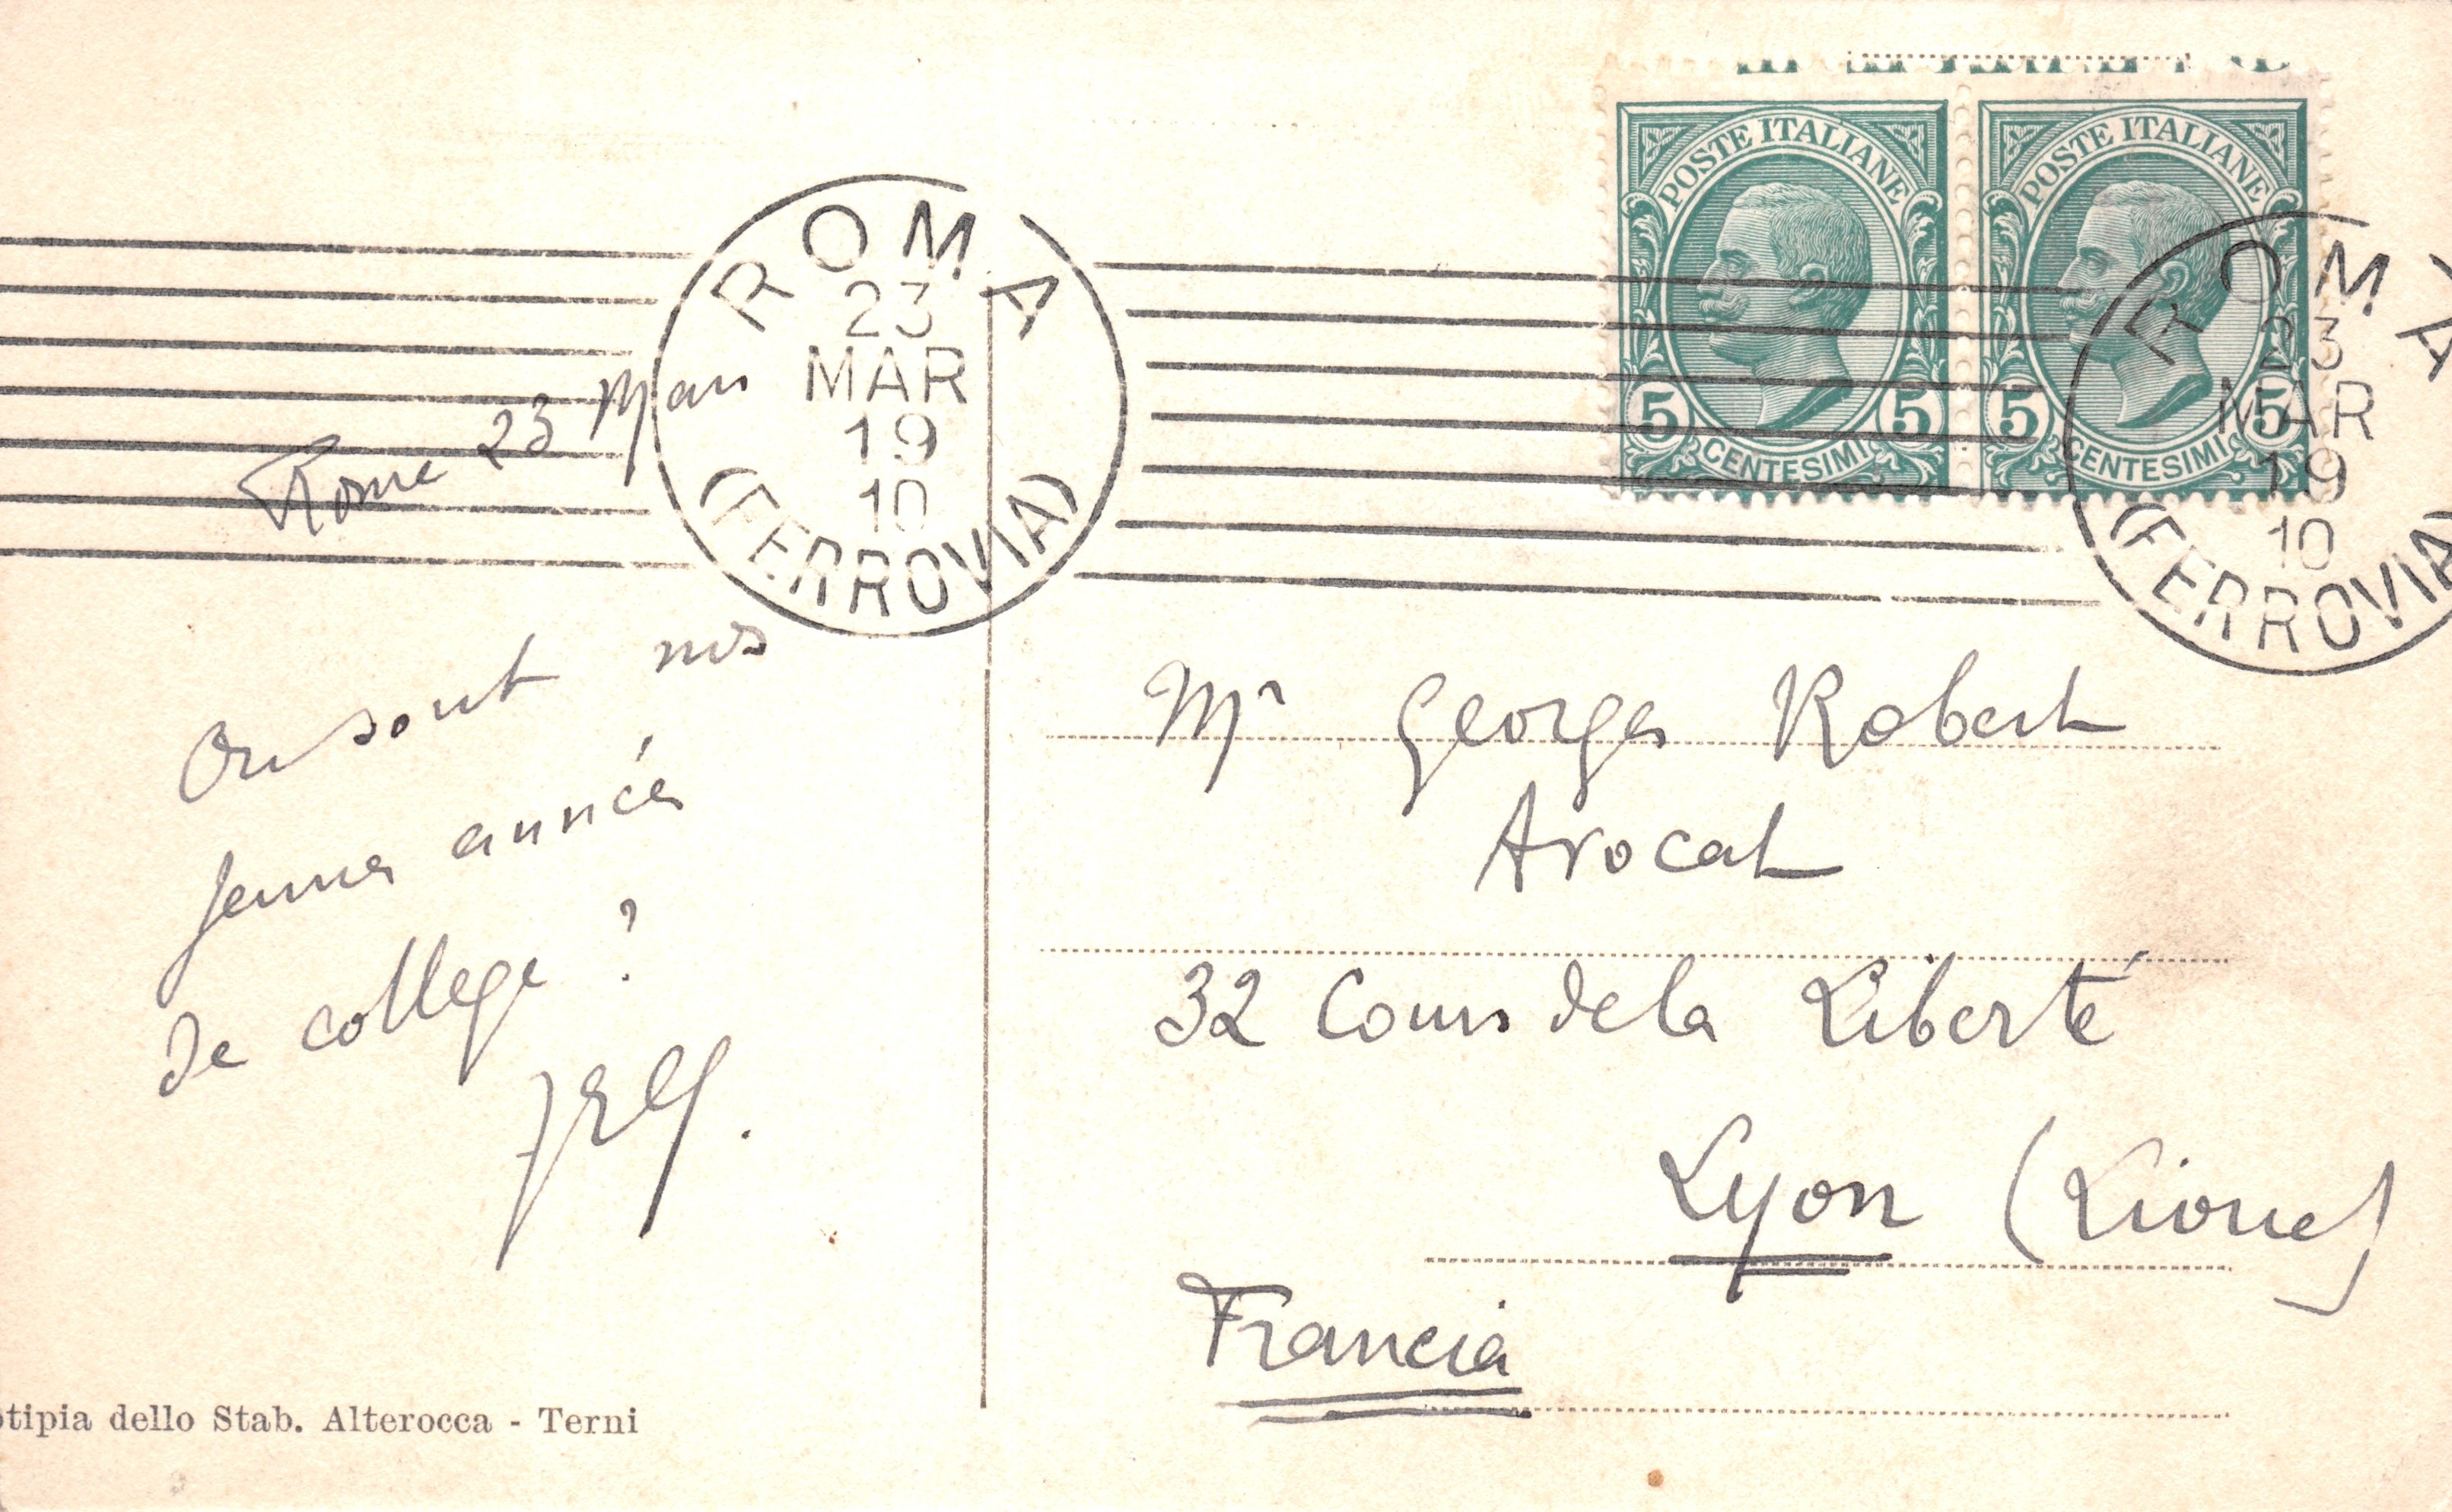 POSTE ITALIANE
5 5
CENTESIMI
POSTE ITALIANE
5 5
CENTESIMI
ROMA
23
MAR
19
10
(FERROVIA)
ROMA
23
MAR
19
10
(FERROVIA)
Rome 23 Mars
Ou sont nos
jeunes années
de college ?
Mr Georges Robert
Avocat
32 Cours de la Liberté
Lyon (Lione)
Francia
otipia dello Stab. Alterocca - Terni